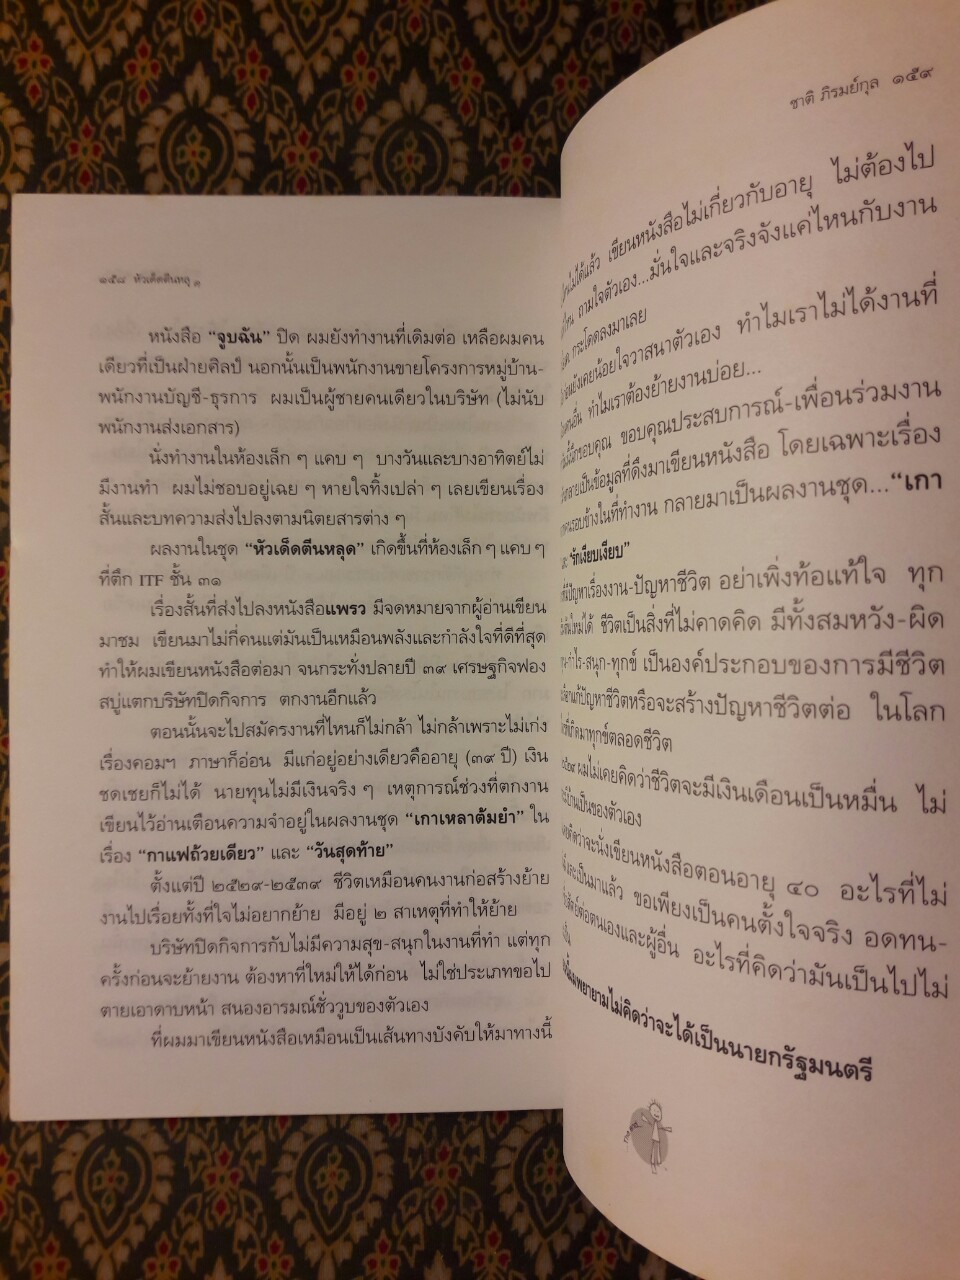 ๑๕๘ หัวเด็ดตีนหลุด
หนังสือ “จูบฉัน” ปิด ผมยังทำงานที่เดิมต่อ เหลือผมคน
เดียวที่เป็นฝ่ายศิลป์ นอกนั้นเป็นพนักงานขายโครงการหมู่บ้าน-
พนักงานบัญชี-ธุรการ ผมเป็นผู้ชายคนเดียวในบริษัท (ไม่นับ
พนักงานส่งเอกสาร)
นั่งทำงานในห้องเล็ก ๆ แคบ ๆ บางวันและบางอาทิตย์ไม่
มีงานทำ ผมไม่ชอบอยู่เฉย ๆ หายใจทิ้งเปล่า ๆ เลยเขียนเรื่อง
สั้นและบทความส่งไปลงตามนิตยสารต่าง ๆ
ผลงานในชุด “หัวเด็ดตีนหลุด” เกิดขึ้นที่ห้องเล็ก ๆ แคบ ๆ
ที่ตึก ITF ชั้น ๓๑
เรื่องสั้นที่ส่งไปลงหนังสือแพรว มีจดหมายจากผู้อ่านเขียน
มาชม เขียนมาไม่กี่คนแต่มันเป็นเหมือนพลังและกำลังใจที่ดีที่สุด
ทำให้ผมเขียนหนังสือต่อมา จนกระทั่งปลายปี ๓๙ เศรษฐกิจฟอง
สบู่แตกบริษัทปิดกิจการ ตกงานอีกแล้ว
ตอนนั้นจะไปสมัครงานที่ไหนก็ไม่กล้า ไม่กล้าเพราะไม่เก่ง
เรื่องคอมฯ ภาษาก็อ่อน มีแก่อยู่อย่างเดียวคืออายุ (๓๙ ปี) เงิน
ชดเชยก็ไม่ได้ นายทุนไม่มีเงินจริง ๆ เหตุการณ์ช่วงที่ตกงาน
เขียนไว้อ่านเตือนความจำอยู่ในผลงานชุด “เกาเหลาต้มยำ” ใน
เรื่อง “กาแฟถ้วยเดียว” และ “วันสุดท้าย”
ตั้งแต่ปี ๒๕๒๙-๒๕๓๙ ชีวิตเหมือนคนงานก่อสร้างย้าย
งานไปเรื่อยทั้งที่ใจไม่อยากย้าย มีอยู่ ๒ สาเหตุที่ทำให้ย้าย
บริษัทปิดกิจการกับไม่มีความสุข-สนุกในงานที่ทำ แต่ทุก
ครั้งก่อนจะย้ายงาน ต้องหาที่ใหม่ให้ได้ก่อน ไม่ใช่ประเภทขอไป
ตายเอาดาบหน้า สนองอารมณ์ชั่ววูบของตัวเอง
ที่ผมมาเขียนหนังสือเหมือนเป็นเส้นทางบังคับให้มาทางนี้
ชาติ ภิรมย์กุล ๑๕๙
ไม่ได้แล้ว เขียนหนังสือไม่เกี่ยวกับอายุ ไม่ต้องไป
ถามใจตัวเอง...มั่นใจและจริงจังแค่ไหนกับงาน
กระโดดลงมาเลย
ยังเคยน้อยใจวาสนาตัวเอง ทำไมเราไม่ได้งานที่
ทำไมเราต้องย้ายงานบ่อย...
ขอบคุณ ขอบคุณประสบการณ์-เพื่อนร่วมงาน
เป็นข้อมูลที่ดึงมาเขียนหนังสือ โดยเฉพาะเรื่อง
รอบข้างในที่ทำงาน กลายมาเป็นผลงานชุด...“เกา
“รักเงียบเงียบ”
ปัญหาเรื่องงาน-ปัญหาชีวิต อย่าเพิ่งท้อแท้ใจ ทุก
ใหม่ได้ ชีวิตเป็นสิ่งที่ไม่คาดคิด มีทั้งสมหวัง-ผิด
กำไร-สนุก-ทุกข์ เป็นองค์ประกอบของการมีชีวิต
แก้ปัญหาชีวิตหรือจะสร้างปัญหาชีวิตต่อ ในโลก
เกิดมาทุกข์ตลอดชีวิต
ผมไม่เคยคิดว่าชีวิตจะมีเงินเดือนเป็นหมื่น ไม่
บ้านเป็นของตัวเอง
คิดว่าจะนั่งเขียนหนังสือตอนอายุ ๔๐ อะไรที่ไม่
และเป็นมาแล้ว ขอเพียงเป็นคนตั้งใจจริง อดทน-
ต่อตนเองและผู้อื่น อะไรที่คิดว่ามันเป็นไปไม่
ผมพยายามไม่คิดว่าจะได้เป็นนายกรัฐมนตรี